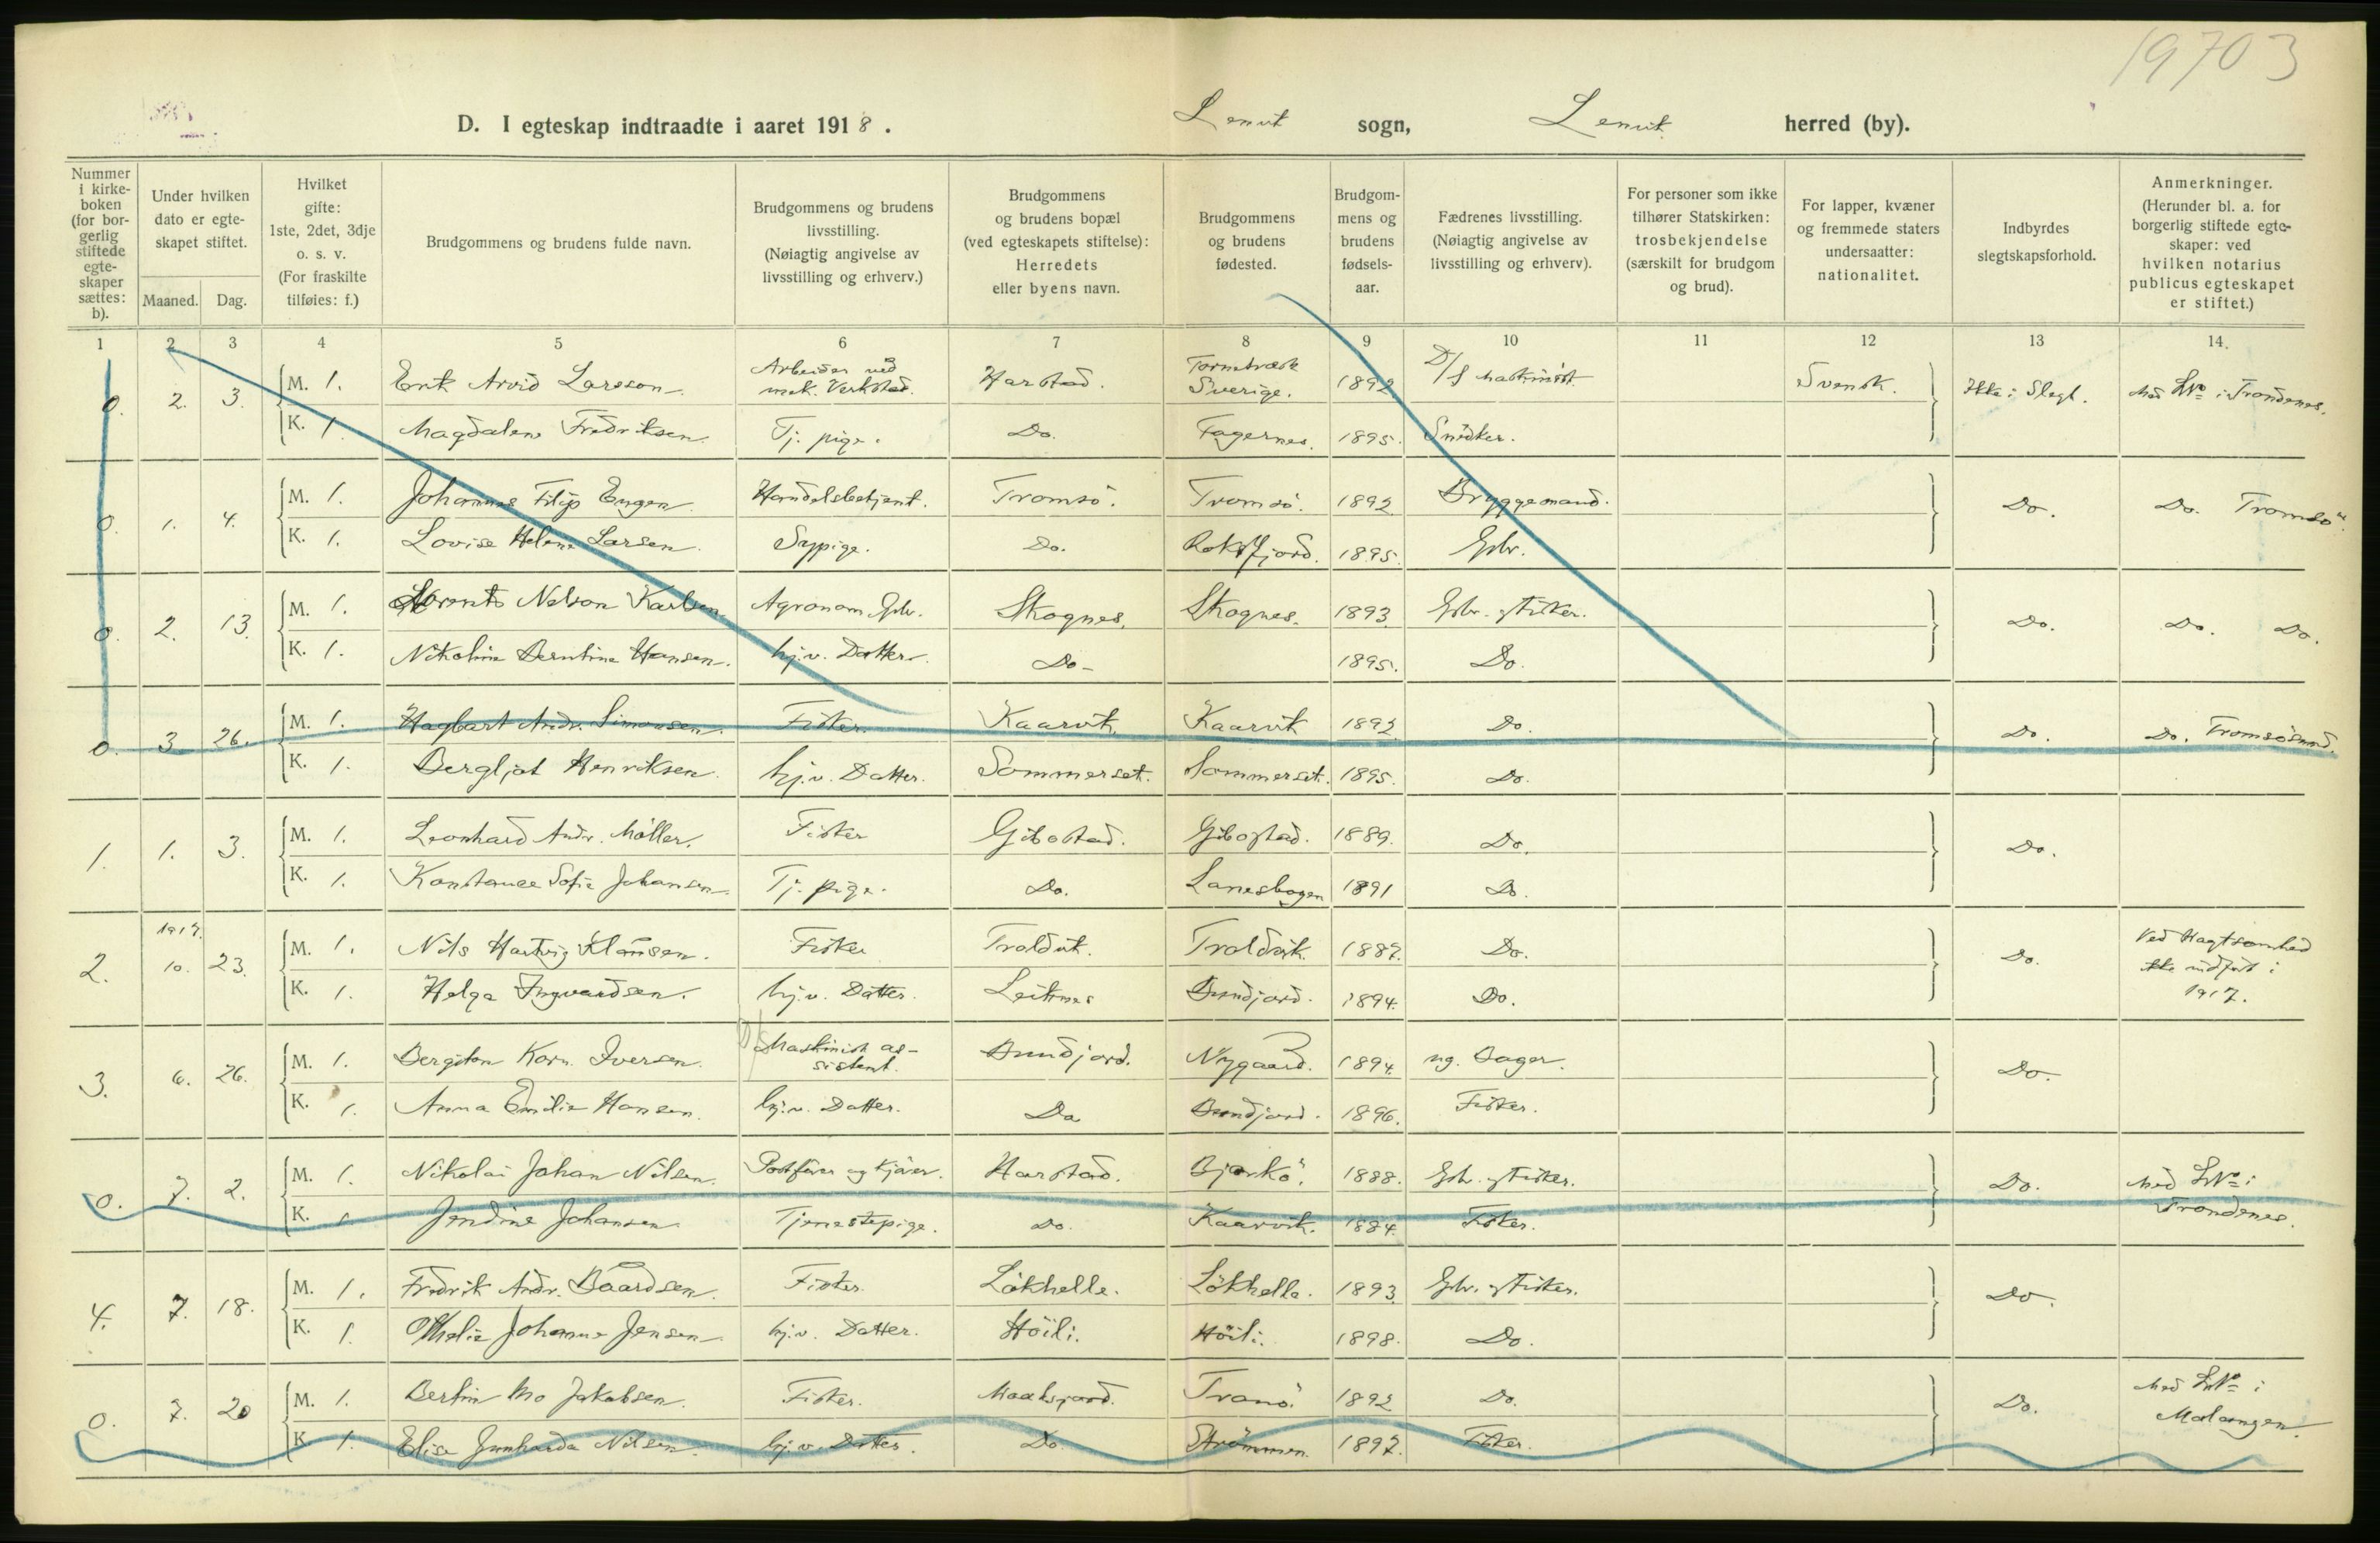 19703
D. I egteskap indtraadte i aaret 1918. Lenvik sogn, Lenvik herred (by).
Nummer i kirkeboken (for borgerlig stiftede egteskaper sættes: b).
Under hvilken dato er egteskapet stiftet.
Maaned. Dag.
Hvilket gifte: 1ste, 2det, 3dje o. s. v. (For fraskilte tilføies: f.)
Brudgommens og brudens fulde navn.
Brudgommens og brudens livsstilling. (Nøiagtig angivelse av livsstilling og erhverv.)
Brudgommens og brudens bopæl (ved egteskapets stiftelse): Herredets eller byens navn.
Brudgommens og brudens fødested.
Brudgommens og brudens fødselsaar.
Fædrenes livsstilling. (Nøiagtig angivelse av livsstilling og erhverv).
For personer som ikke tilhører Statskirken: trosbekjendelse (særskilt for brudgom og brud).
For lapper, kvæner og fremmede staters undersaatter: nationalitet.
Indbyrdes slegtskapsforhold.
Anmerkninger. (Herunder bl. a. for borgerlig stiftede egteskaper: ved hvilken notarius publicus egteskapet er stiftet.)
1 2 3 4 5 6 7 8 9 10 11 12 13 14.
0. 2. 3. M. 1. Erik Arvid Larsson. Arbeider ved mek. Verksted. Harstad. Torneträsk Sverige. 1892 D/S Maskinist. Svensk. Ikke i Slegt. Med LNo i Trondenes.
K. 1. Magdalene Fredriksen. Tj. pige. Do. Fagernes. 1895. Snedker.
0. 1. 4. M. 1. Johannes Filip Engen. Handelsbetjent. Tromsö. Tromsö. 1892. Bryggemand. Do. Do. Tromsö.
K. 1. Lovise Helene Larsen. Sypige. Do. 1895. Gbr.
0. 2. 13. M. 1. Nelson Karlsen Agronom Gbr. Skognes. Skognes. 1893. Gbr. og Fisker. Do. Do. Do.
K. 1. Nikoline Berntine Hansen. hj.v. Datter. Do. 1895. Do.
0. 3. 26. M. 1. Hagbart Andr. Simonsen. Fisker. Kaarvik. Kaarvik 1892. Do. Do. Do. Tromsösund.
K. 1. Bergljot Henriksen. hj.v. Datter. Sommerset. Sommerset. 1895. Do.
1. 1. 3. M. 1. Leonhard Andr. Möller. Fisker Gibostad. Gibostad. 1889. Do. Do.
K. 1. Konstance Sofie Johansen. Tj. pige. Do. Lanesbogen 1891 Do.
2. 1917. 10. 23. M. 1. Nils Hartvig Klausen. Fisker Troldvik. Troldvik. 1887. Do. Do. Ved Uagtsomhed ikke indført i 1917.
K. 1. Helga Ingvardsen. hj.v. Datter. Leiknes Bundjord. 1894. Do.
3. 6. 26. M. 1. Bergiton Korn. Iversen. D/S Maskinist assistent. Bundjord. Nygaard. 1894. ug. Bager. Do.
K. 1. Anna Emilie Hansen. hj.v. Datter. Do Bundjord. 1896. Fisker.
0. 7. 2. M. 1. Nikolai Johan Nilsen. Harstad. Bjarkö. 1888. Gbr. og Fisker. Do. Med LNo i Trondenes.
K. 1 Jendine Johansen. Tjenestepige. Do. Kaarvik. 1884. Fisker.
4. 7. 18. M. 1. Fredrik Andr. Baardsen. Fisker. Lökhelle. Lökhelle. 1893. Gbr. og Fisker. Do.
K. 1. Othelie Johanne Jensen. hj.v. Datter. Höili. Höili. 1898. Do.
0. 7. 20 M. 1. Bertin Mo Jakobsen. Fisker. Tranö. 1892 Do. Do. Med LNo i Malangen.
K 1. Elise Junharda Nilsen. hj.v. Datter. Do. Strömmen. 1897. Fisker.